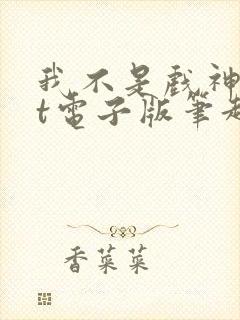 我不是戲神
t電子版筆趣
香菜菜